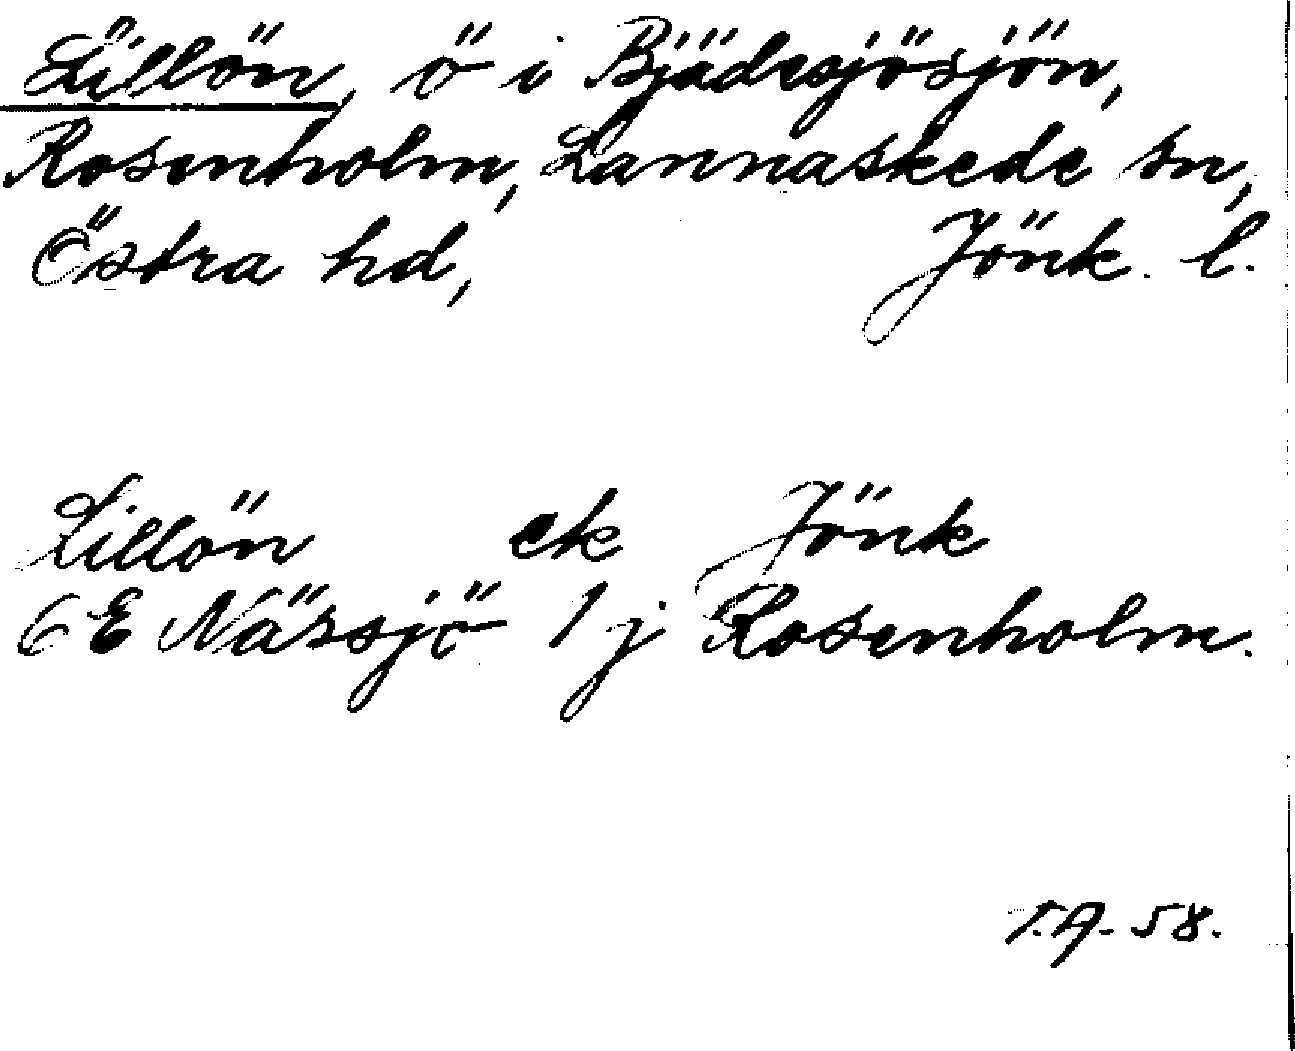 Lillön, ö i Bjädesjösjön,
Rosenholm, Lannaskede sn,
Östra hd, Jönk. l.
Lillön ek Jönk
6E Nässjö 1j Rosenholm.
T.A. 58.